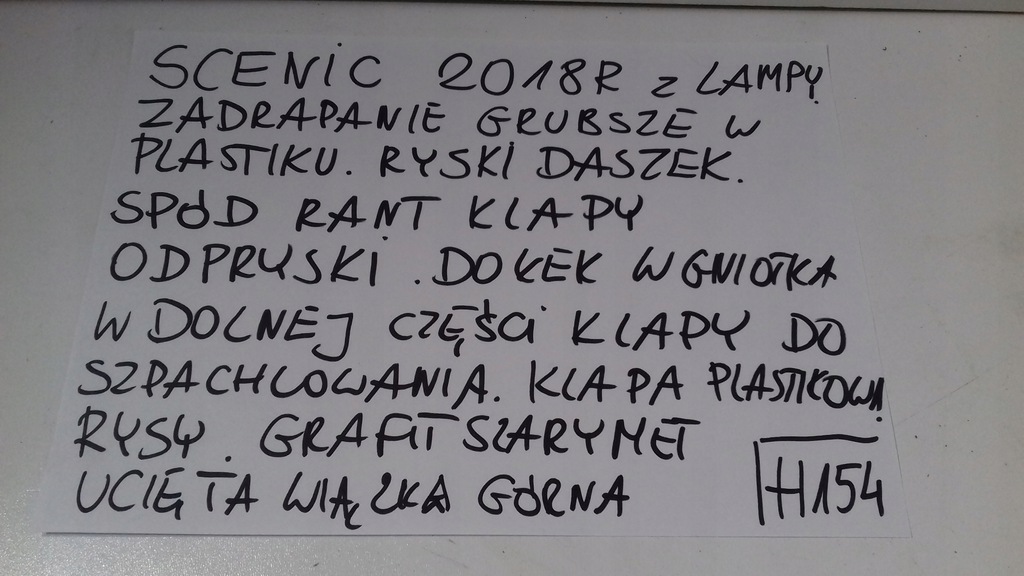 SCENIC 2018R z LAMPY.
ZADRAPANIE GRUBSZE W
PLASTIKU. RYSKI DASZEK.
SPÓD RANT KLAPY
ODPRYSKI. DOŁEK WGNIOTKA
W DOLNEJ CZĘŚCI KLAPY DO
SZPACHLOWANIA. KLAPA PLASTIKOWA.
RYSY. GRAFIT SZARY MET
UCIĘTA WIĄZKA GÓRNA
H154